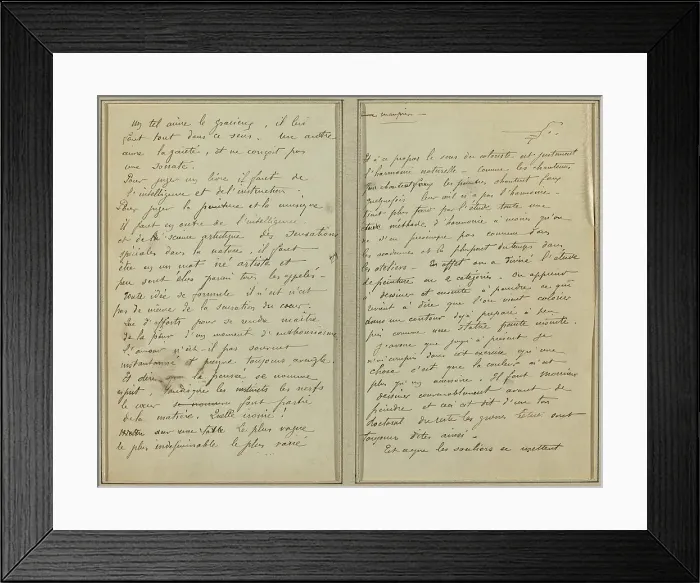 Un tel aime le gracieux, il lui
faut tout dans ce sens. Un autre
aime la gaieté, et ne conçoit pas
une sonate.
Pour juger un livre il faut de
l'intelligence et de l'instruction.
Pour juger la peinture et la musique
il faut en outre de l'intelligence
et de la science artistique des sensations
spéciales dans la nature, il faut
être en un mot né artiste et
peu sont élus parmi tous les appelés -
Toute idée se formule il n'en n'est
pas de même de la sensation du cœur.
Que d'efforts pour se rendre maître
de la peur d'un moment d'enthousiasme
L'amour n'est-il pas souvent
instantané et presque toujours aveugle.
Et dire que la pensée se nomme
esprit, tandis que les instincts les nerfs
le cœur font partie
de la matière. Quelle ironie!
sur une le plus vague
le plus indéfinissable le plus varié
Et à propos le sens du coloriste est justement
l'harmonie naturelle - Comme les chanteurs
chantent faux les peintres chantent faux
leur œil n'a pas l'harmonie.
plus tard par l'étude toute une
méthode d'harmonie à moins qu'on
ne s'en préoccupe pas comme dans
les académies et la plupart du temps dans
les ateliers - En effet on a divisé l'étude
de peinture en 2 catégories. On apprend
à dessiner et ensuite à peindre ce qui
revient à dire que l'on vient colorier
dans un contour déjà préparé à peu
près comme une statue peinte ensuite.
J'avoue que jusqu'à présent je
n'ai compris dans cet exercice qu'une
chose c'est que la couleur n'est
plus qu'un accessoire. Il faut Monsieur
dessiner convenablement avant de
peindre et ceci est dit d'un ton
doctoral du reste les grosses bêtises sont
toujours dites ainsi -
Est ce que les souliers se mettent